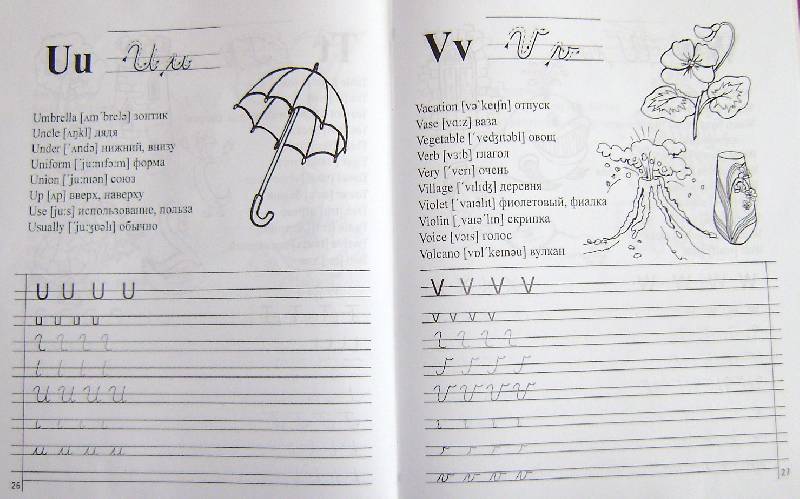 Uu U u
Umbrella [ʌm´brelə] зонтик
Uncle [ʌŋkl] дядя
Under [´ʌndə] нижний, внизу
Uniform [´ju:nıfɔ:m] форма
Union [´ju:nıən] союз
Up [ʌp] вверх, наверху
Use [ju:s] использование, польза
Usually [´ju:ʒʊəlı] обычно
U U U U
u u u u
U U U U
u u u u
26
Vv V v
Vacation [və´keıʃn] отпуск
Vase [vɑ:z] ваза
Vegetable [´vedʒıtəbl] овощ
Verb [vɜ:b] глагол
Very [´verı] очень
Village [´vılıdʒ] деревня
Violet [´vaıəlıt] фиолетовый, фиалка
Violin [ˌvaıə´lın] скрипка
Voice [vɔıs] голос
Volcano [vɒl´keınəu] вулкан
V V V V
v v v v
V V V V
v v v v
27